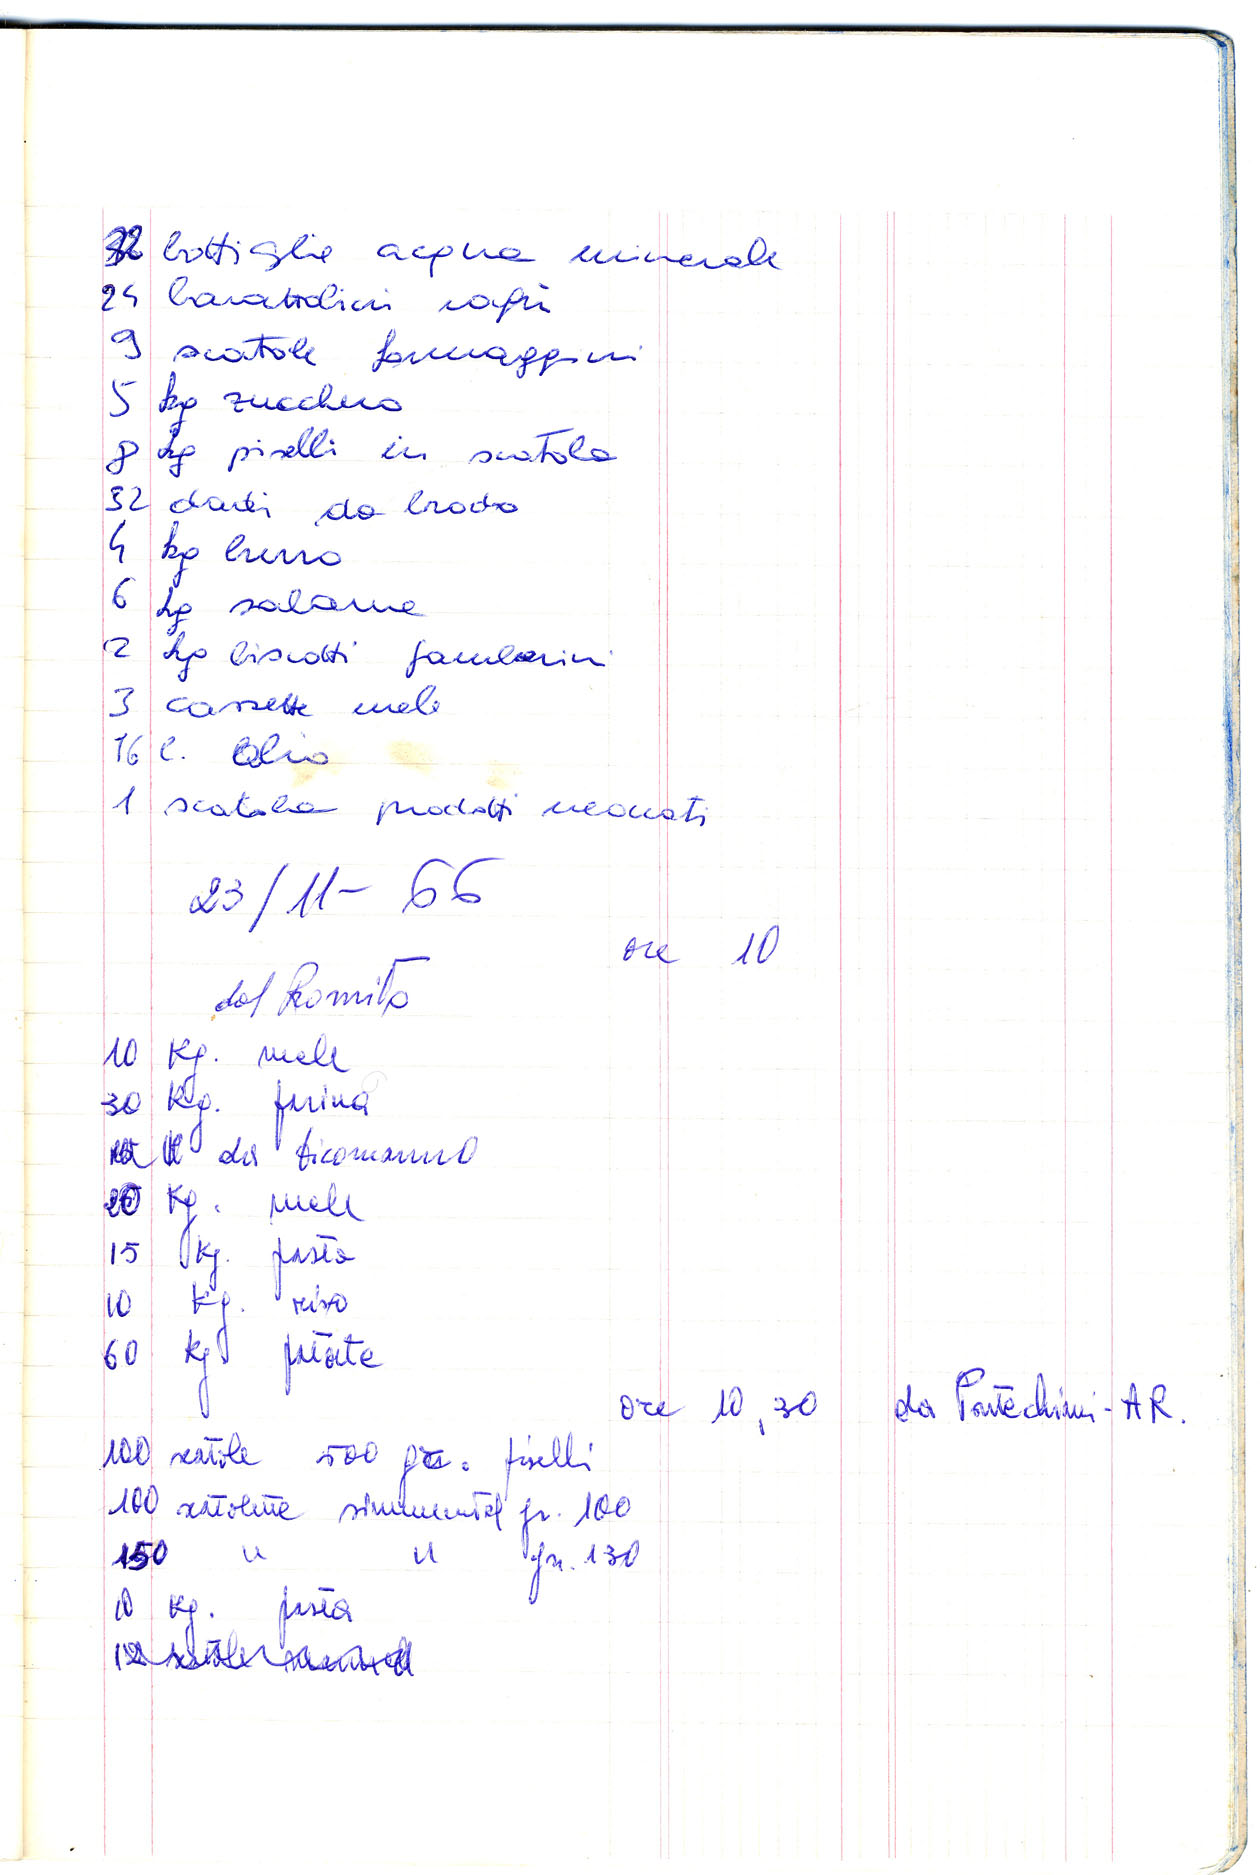 32 bottiglie acqua minerale
24 barattolini ragù
9 scatole formaggini
5 kg zucchero
8 kg piselli in scatola
32 dadi da brodo
4 kg burro
6 kg salame
2 kg biscotti
3 cassette mele
16 l. olio
1 scatola prodotti neonati
23/11-66
ore 10
dal Romito
10 Kg. mele
30 Kg. farina
da Dicomanno
20 Kg. mele
15 Kg. pasta
10 Kg. riso
60 Kg patate
ore 10,30 da - AR.
100 scatole 500 gr. piselli
100 scatolette simmental gr. 100
150 " " gr. 130
10 Kg. pasta
12 scatole